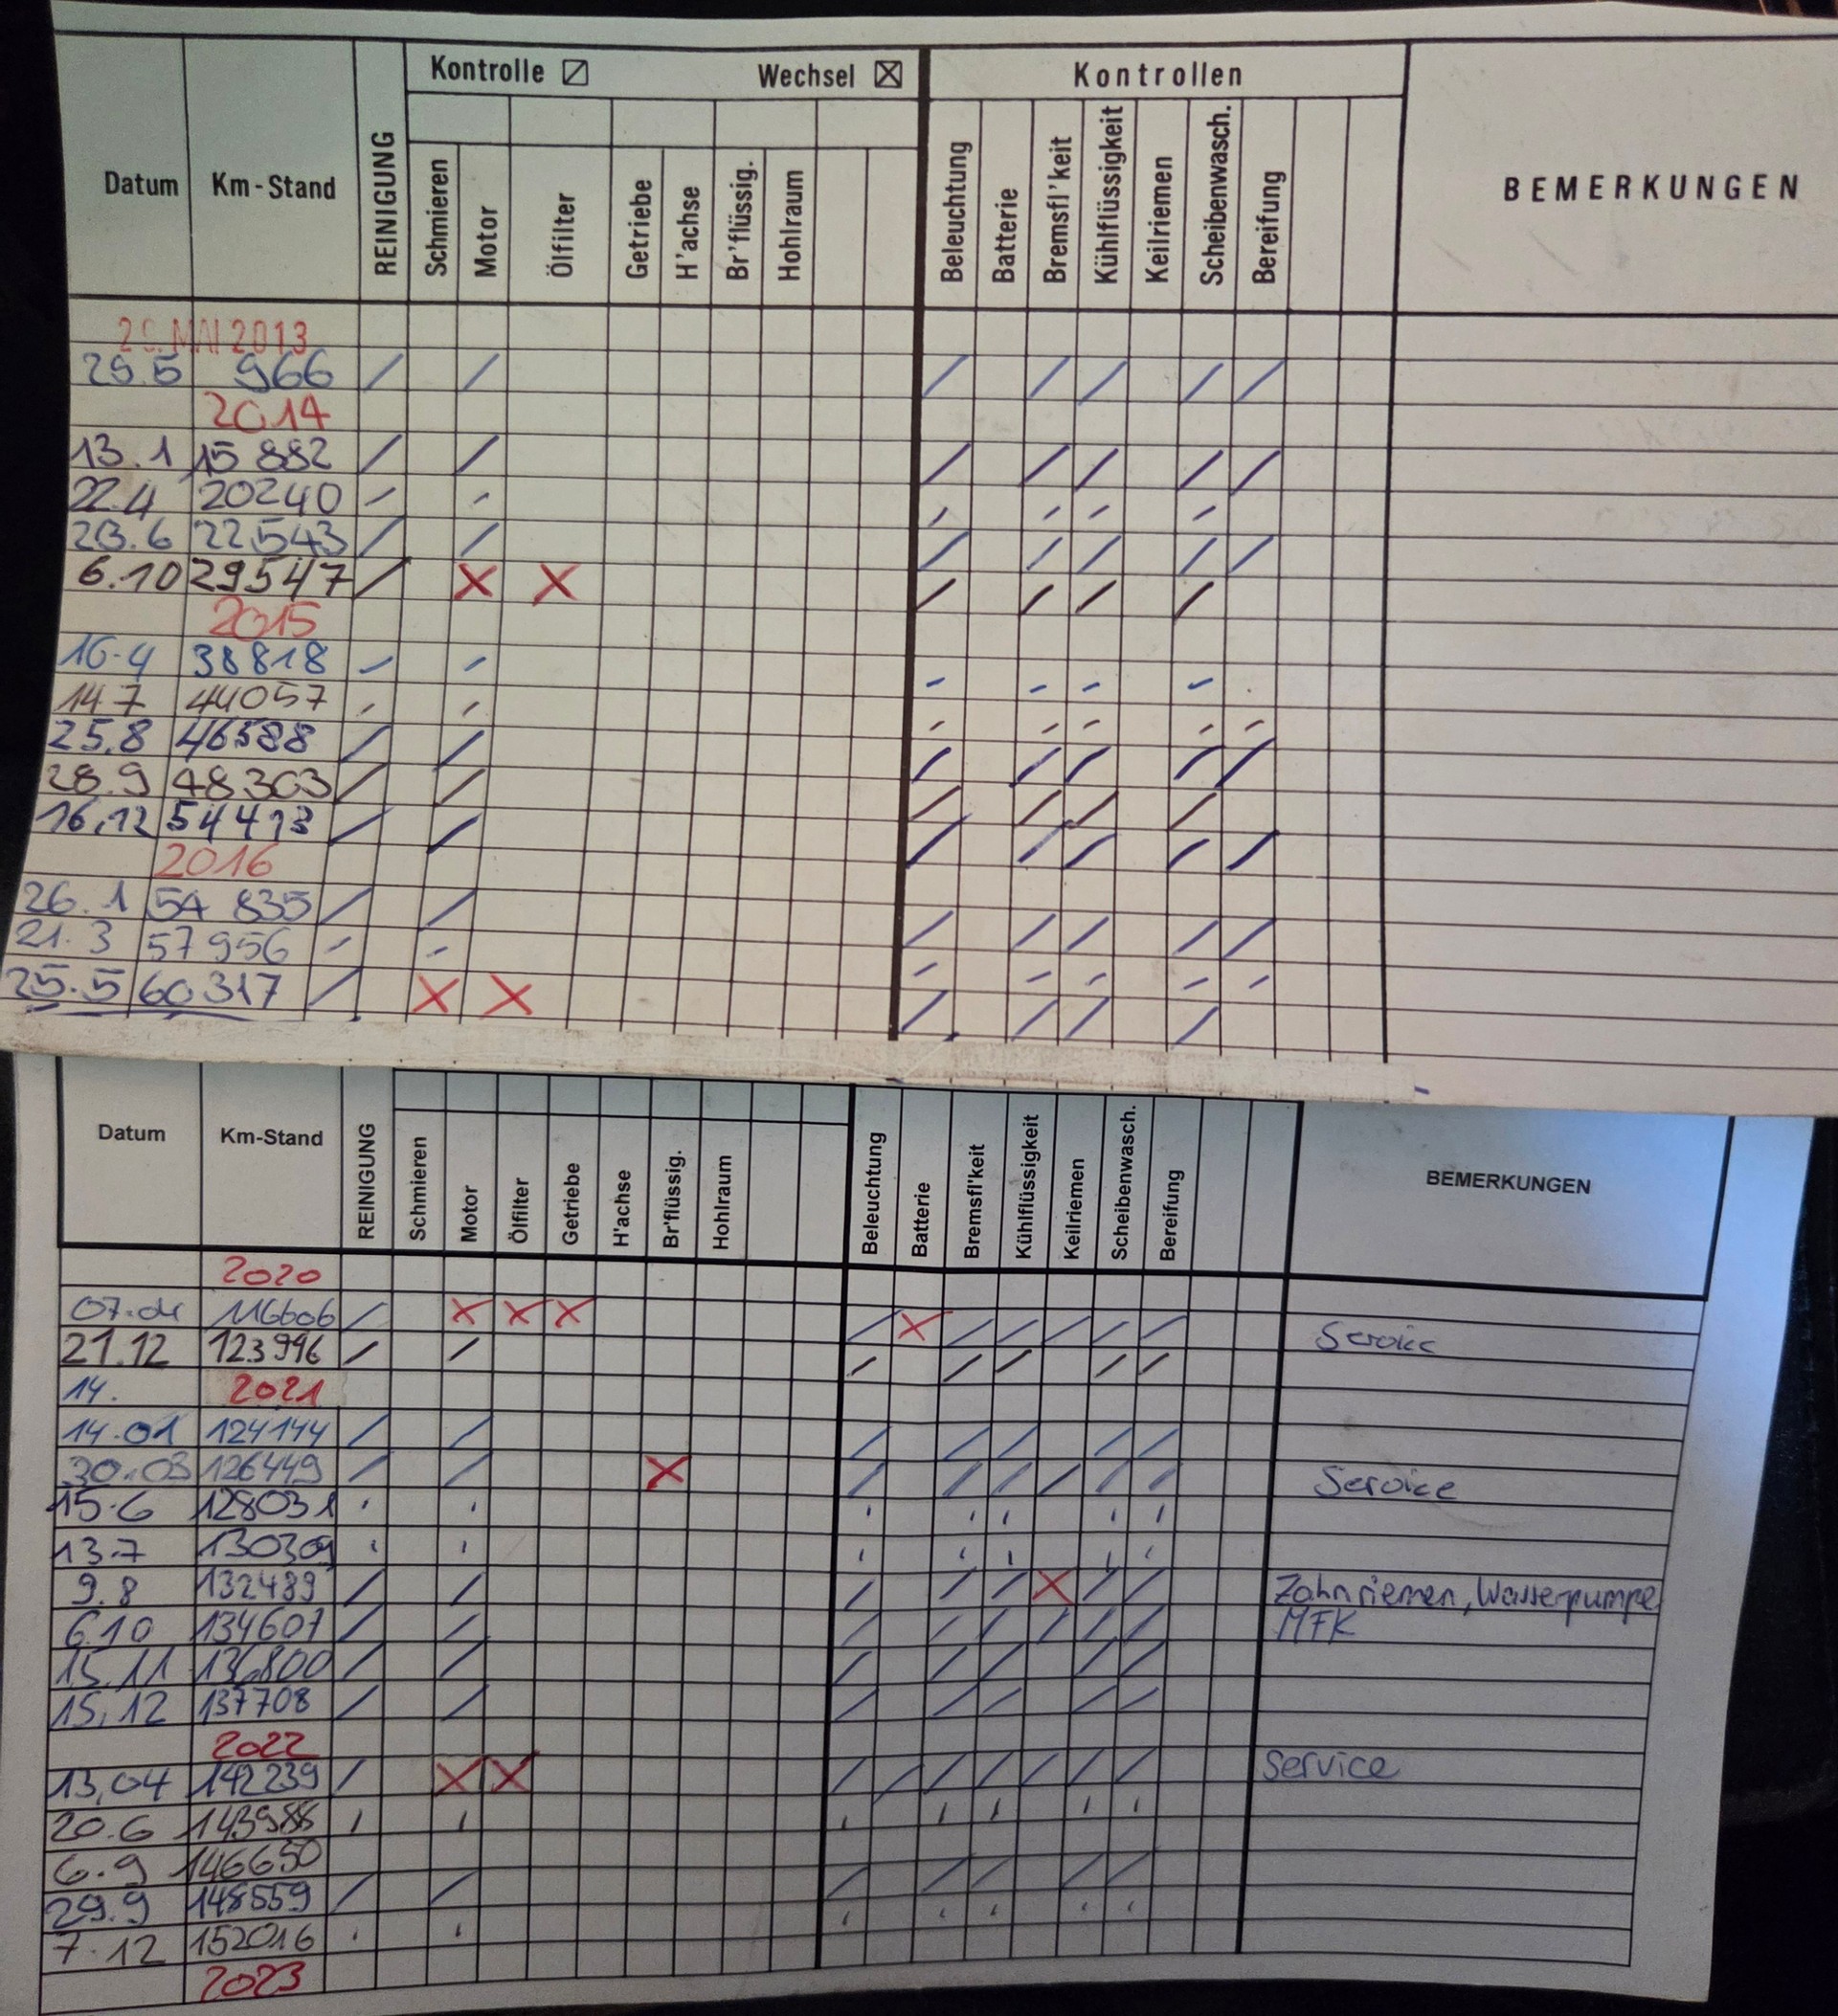 Kontrolle ☑ Wechsel ☒ Kontrollen
Datum Km-Stand REINIGUNG Schmieren Motor Ölfilter Getriebe H'achse Br'flüssig. Hohlraum Beleuchtung Batterie Bremsfl'keit Kühlflüssigkeit Keilriemen Scheibenwasch. Bereifung BEMERKUNGEN
MAI 2013
29.5 966 / / / / / / /
2014
13.1 15 882 / / / / / / /
22.4 20240 / / / / / /
23.6 22543 / / / / / / /
6.10 29547 / X X / / / /
2015
16.4 38818 / / / / / /
14.7 44057 / / / / / / /
25.8 46588 / / / / / / /
28.9 48303 / / / / / /
16.12 54413 / / / / / / /
2016
26.1 54 835 / / / / / / /
21.3 57956 / / / / / / /
25.5 60317 / X X / / / /
Datum Km-Stand REINIGUNG Schmieren Motor Ölfilter Getriebe H'achse Br'flüssig. Hohlraum Beleuchtung Batterie Bremsfl'keit Kühlflüssigkeit Keilriemen Scheibenwasch. Bereifung BEMERKUNGEN
2020
07.04 116606 / X X X / X / / / / / Service
21.12 123996 / / / / / / /
14. 2021
14.01 124144 / / / / / / /
30.03 126449 / / X / / / / / / Service
15.6 128031 / / / / / / /
13.7 130309 / / / / / / /
9.8 132489 / / / / / X / / Zahnriemen, Wasserpumpe
6.10 134607 / / / / / / / / MFK
15.11 136800 / / / / / / /
15.12 137708 / / / / / / /
2022
13.04 142239 / X X / / / / / / / Service
20.6 143988 / / / / / / /
6.9 146650
29.9 148559 / / / / / / /
7.12 152016 / / / / / / /
2023